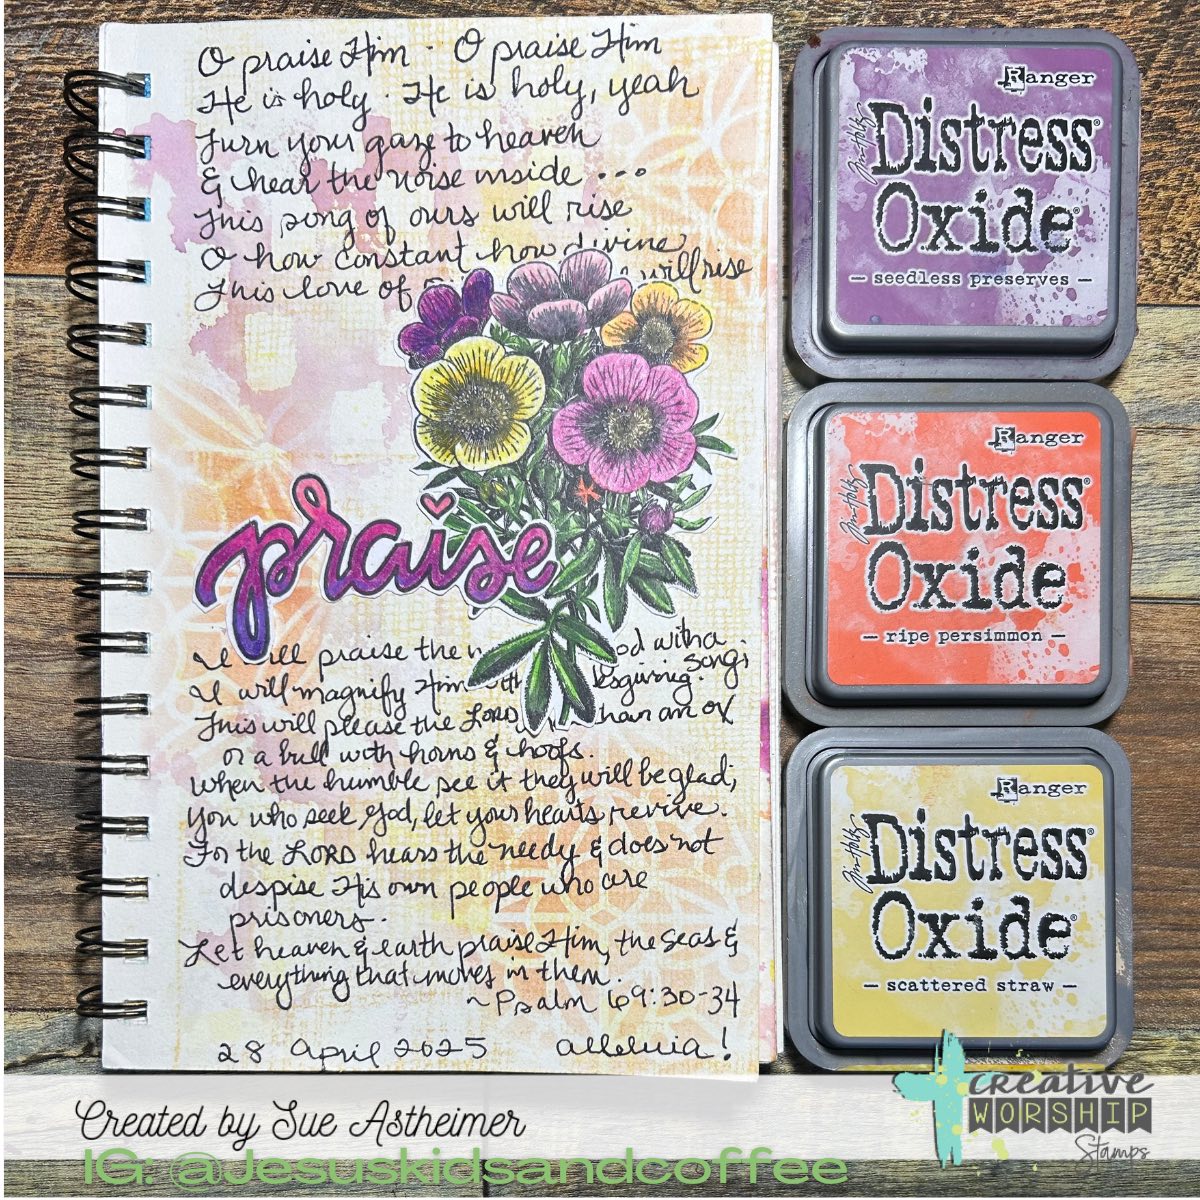 O praise Him · O praise Him
He is holy · He is holy, yeah
Turn your gaze to heaven
& hear the noise inside ...
This song of ours will rise
O how constant how divine
This love of will rise
praise
I will praise the od with a song.
I will magnify Him with sgiving.
This will please the LORD han an ox
or a bull with horns & hoofs.
When the humble see it they will be glad;
You who seek God, let your hearts revive.
For the LORD hears the needy & does not
despise His own people who are
prisoners.
Let heaven & earth praise Him, the seas &
everything that moves in them.
~ Psalm 69:30-34
28 April 2025 alleluia!
Ranger
Tim Holtz
Distress®
Oxide®
— seedless preserves —
Ranger
Tim Holtz
Distress®
Oxide®
— ripe persimmon —
Ranger
Tim Holtz
Distress®
Oxide®
— scattered straw —
Created by Sue Astheimer
IG: @Jesuskidsandcoffee
creative
WORSHIP
Stamps